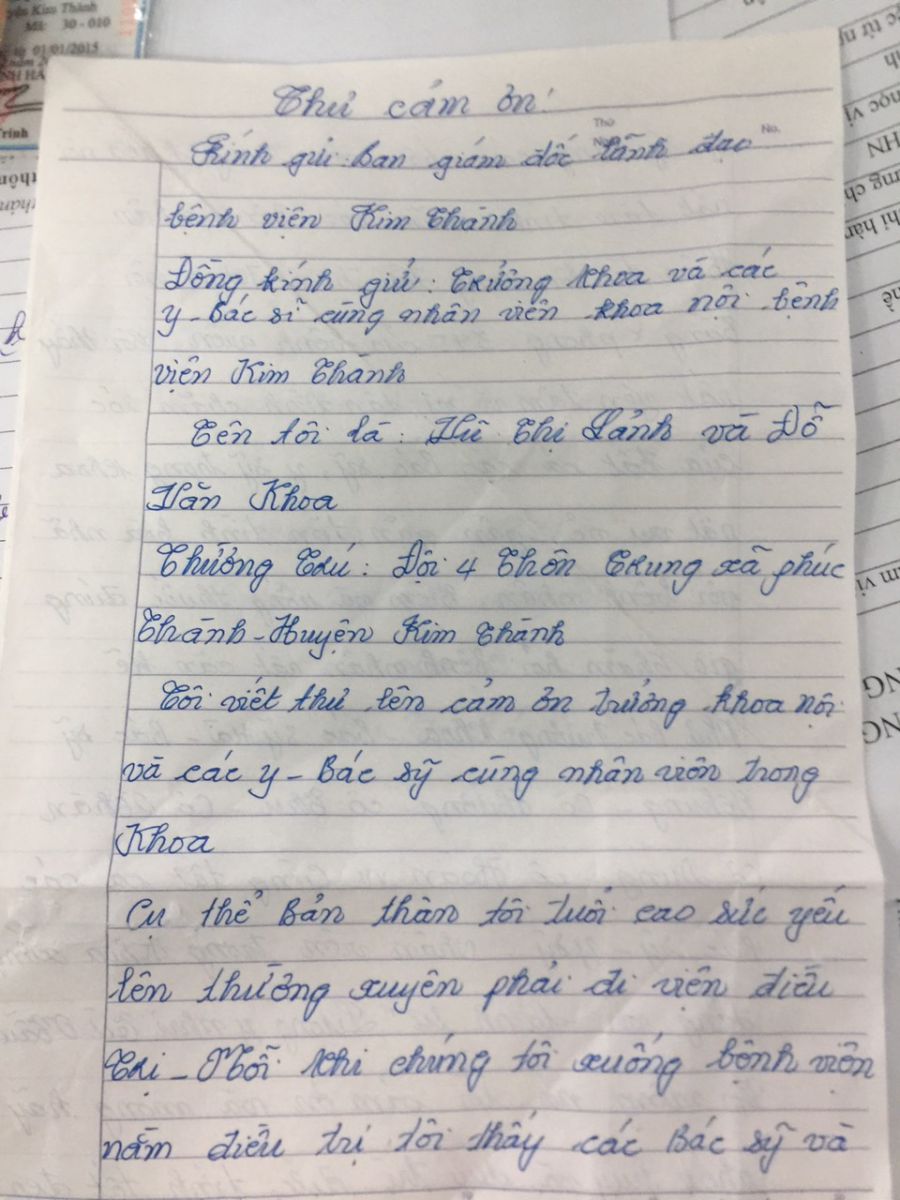 yễn Kim Thành
Mã: 30 - 010
01/01/2015
Trinh
Thư cám ơn!
Thứ
No.
Kính gửi Ban giám đốc lãnh đạo
bệnh viện Kim Thành
Đồng kính gửi: Trưởng khoa và các
y - Bác sĩ cùng nhân viên khoa nội bệnh
viện Kim Thành
Tên tôi là: Vũ Thị Lảnh và Đỗ
Văn Khoa
Thường Trú: Đội 4 Thôn Trung xã phúc
Thành - Huyện Kim Thành
Tôi viết thư lên cảm ơn trưởng khoa nội
và các y - Bác sỹ cùng nhân viên trong
Khoa
Cụ thể Bản thân tôi tuổi cao sức yếu
lên thường xuyên phải đi viện điều
Trị - Mỗi khi chúng tôi xuống bệnh viện
nằm điều trị tôi thấy các Bác sỹ và